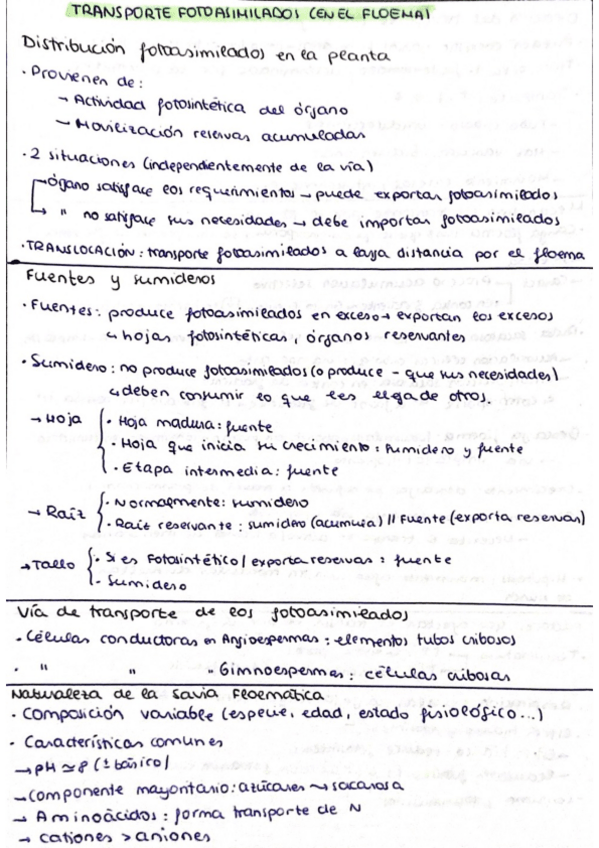 TRANSPORTE FOTOASIMILADOS (EN EL FLOEMA)
Distribución fotoasimilados en la planta
· Provienen de:
→ Actividad fotosintética del órgano
→ Movilización reservas acumuladas
· 2 situaciones (independientemente de la vía)
→ órgano satisface los requerimientos → puede exportar fotoasimilados
↳ " no satisface sus necesidades → debe importar fotoasimilados
· TRANSLOCACIÓN: transporte fotoasimilados a larga distancia por el floema
Fuentes y sumideros
· Fuentes: produce fotoasimilados en exceso → exportan los excesos
↳ hojas fotosintéticas, órganos reservantes
· Sumidero: no produce fotoasimilados (o produce - que sus necesidades)
↳ deben consumir lo que les llega de otros.
→ Hoja { · Hoja madura: fuente
· Hoja que inicia su crecimiento: sumidero y fuente
· Etapa intermedia: fuente
→ Raíz { · Normalmente: sumidero
· Raíz reservante: sumidero (acumula) // Fuente (exporta reservas)
→ Tallo { · Si es Fotosintético / exporta reservas: fuente
· Sumidero
Vía de transporte de los fotoasimilados
· Células conductoras en Angioespermas: elementos tubos cribosos
· " " · Gimnoespermas: células cribosas
Naturaleza de la savia floemática
· Composición variable (especie, edad, estado fisiológico...)
· Características comunes
→ pH ≃ 8 (± básico)
→ componente mayoritario: azúcares ~ sacarosa
→ Aminoácidos: forma transporte de N
→ cationes > aniones